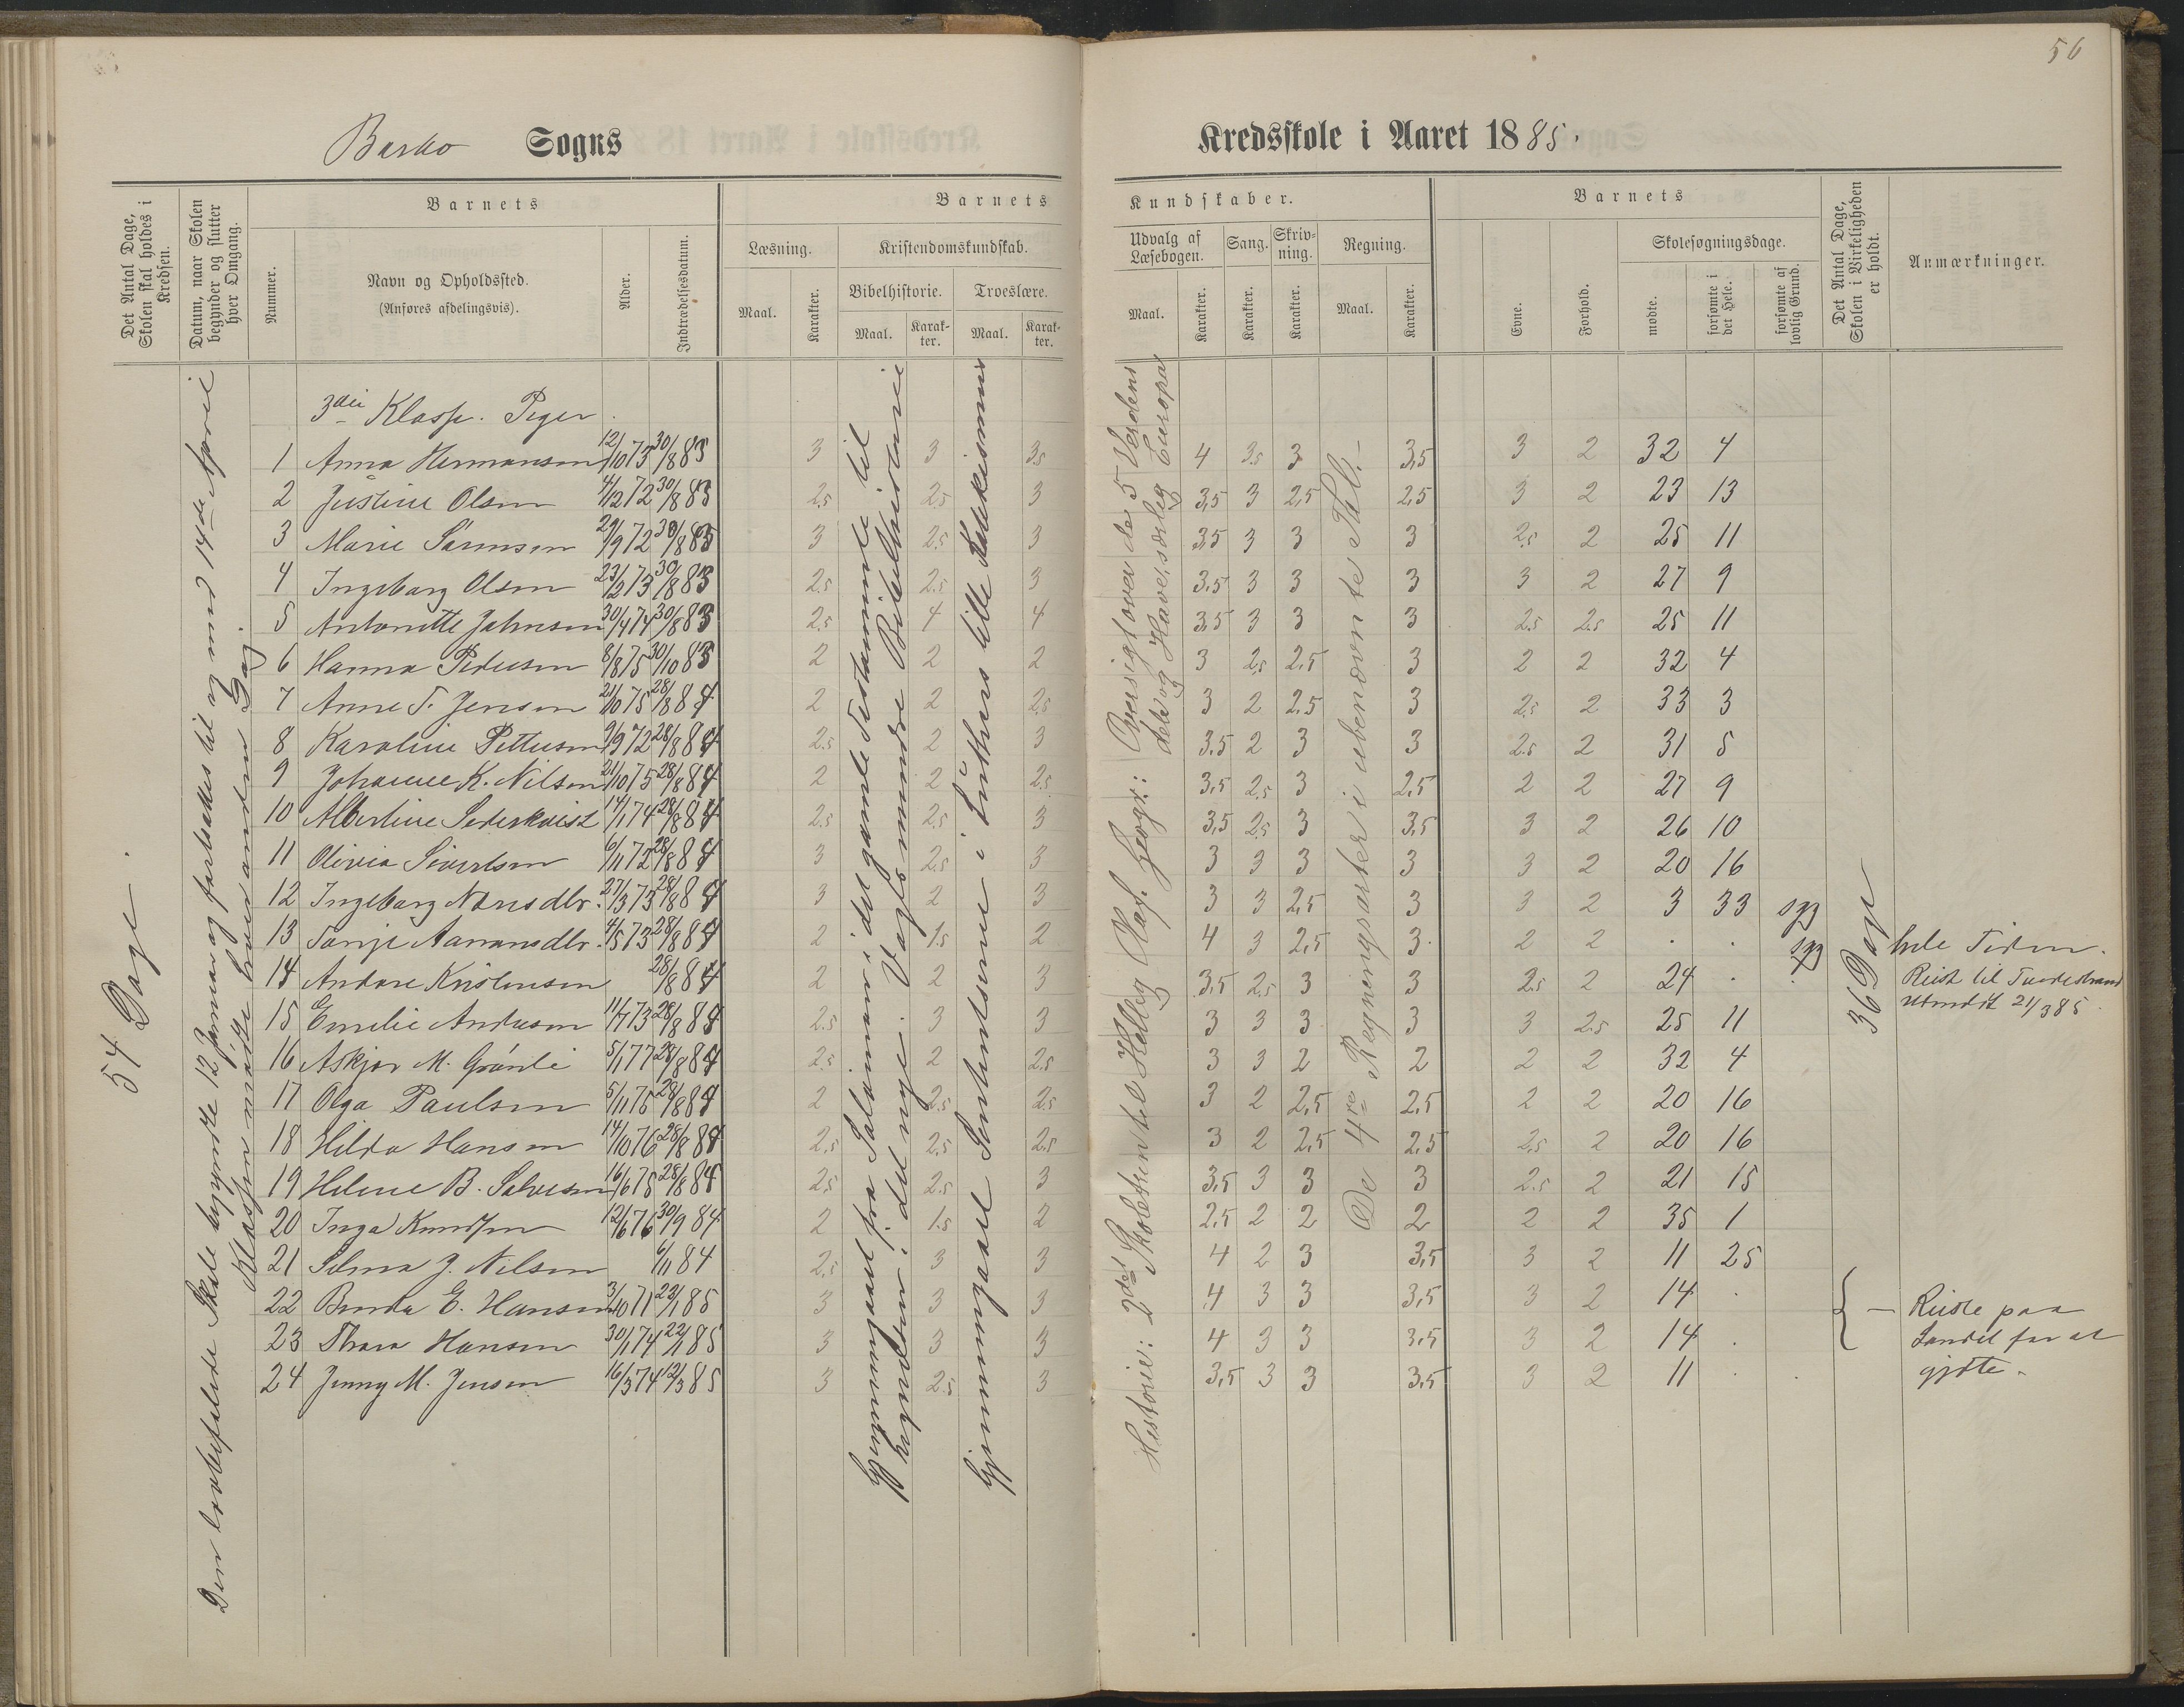 56
Barbo Sogns
Kredsskole i Aaret 1885.
Det Antal Dage, Skolen skal holdes i Kredsen.
Datum, naar Skolen begynder og slutter hver Omgang.
Barnets
Nummer.
Navn og Opholdssted.
(Anføres afdelingsvis).
Alder.
Indtrædelsesdatum.
Barnets
Læsning.
Maal.
Karakter.
Kristendomskundskab.
Bibelhistorie.
Maal.
Karak-
ter.
Troeslære.
Maal.
Karak-
ter.
Kundskaber.
Udvalg af
Læsebogen.
Maal.
Karakter.
Sang.
Karakter.
Skriv-
ning.
Karakter.
Regning.
Maal.
Karakter.
Barnets
Evne.
Forhold.
Skolesøgningsdage.
mødte.
forsømte i det Hele.
forsømte af lovlig Grund.
Det Antal Dage, Skolen i Virkeligheden er holdt.
Anmærkninger.
54 Dage.
Den lovbefalede Skole begyndte 12 Januar og fortsattes til og med 14de April
Klassen mødte hver anden Dag.
Gjennemgaaet fra Salomon i det gamle Testamente til
i det nye. Vogts mindre Bibelhistorie
Gjennemgaaet i Luthers lille Katekismus
Historie: 2det Skoletrin til Hellig Olaf. Geogr.: Oversigt over de 5 Verdens
dele og Have, særlig Europa
De 4re Regningsarter i ubenævnte Tal.
36 Dage
3die Klasse. Piger.
1 Anna Hermansen 12/10 73 30/8 83 3 3 3.5 4 3.5 3 3,5 3 2 32 4
2 Justine Olsen 4/12 72 30/8 83 2.5 2.5 3 3,5 3 2,5 2,5 3 2 23 13
3 Marie Sørensen 29/9 72 30/8 83 3 2.5 3 3,5 3 3 3 2.5 2 25 11
4 Ingeborg Olsen 23/2 73 30/8 83 2.5 2.5 3 3,5 3 3 3 3 2 27 9
5 Antonette Johnsen 30/4 74 30/8 83 2.5 4 4 3,5 3 3 3 2.5 2.5 25 11
6 Hanna Pedersen 8/8 75 30/10 83 2 2 2 3 2.5 2.5 3 2 2 32 4
7 Anne T. Jensen 21/10 75 28/8 84 2 2 2.5 3 2 2.5 3 2.5 2 33 3
8 Karoline Pettersen 9/9 72 28/8 84 2.5 2 3 3.5 2 3 3 2.5 2 31 5
9 Johanne K. Nilsen 21/10 75 28/8 84 2 2 2.5 3,5 2.5 3 2,5 2 2 27 9
10 Albertine Sederkvist 14/1 74 28/8 84 2.5 2.5 3 3,5 2.5 3 3,5 3 2 26 10
11 Olivia Sivertsen 6/11 72 28/8 84 3 2.5 3 3 3 3 3 3 2 20 16
12 Ingeborg Nærisdtr. 27/3 73 28/8 84 3 2 3 3 3 2,5 3 3 2 3 33 syg
13 Tonje Aanansdtr. 4/5 73 28/8 84 2 1.5 2 4 3 2,5 3 2 2 . . syg hele Tiden.
14 Andore Kristensen 28/8 84 2 2 3 3,5 2.5 3 3 2.5 2 24 . . Reist til Tvedestrand
Udmeldt 21/3 85.
15 Emilie Andresen 11/7 73 28/8 84 2.5 3 3 3 3 3 3 3 2.5 25 11
16 Askjør M. Grønli 5/1 77 28/8 84 2.5 2 2.5 3 3 2 2 2 2 32 4
17 Olga Paulsen 5/11 75 28/8 84 2 2.5 2.5 3 2 2,5 2,5 2 2 20 16
18 Hilda Hansen 14/10 76 28/8 84 2.5 2.5 2.5 3 2 2.5 2,5 2.5 2 20 16
19 Helene B. Salvesen 16/6 75 28/8 84 2.5 2.5 3 3,5 3 3 3 2.5 2 21 15
20 Inga Knudsen 12/6 76 30/9 84 2 1.5 2 2,5 2 2 2 2 2 35 1
21 Selma J. Nilsen 6/11 84 2.5 3 3 4 2 3 3,5 3 2 11 25
22 Berta E. Hansen 3/10 71 22/1 85 3 3 3 4 3 3 3,5 3 2 14 . Reiste paa
23 Thora Hansen 30/1 74 22/1 85 3 3 3 4 3 3 3,5 3 2 14 . Landet for at
24 Jenny M. Jensen 16/3 74 12/3 85 3 2.5 3 3,5 3 3 3,5 3 2 11 . . gjæte.